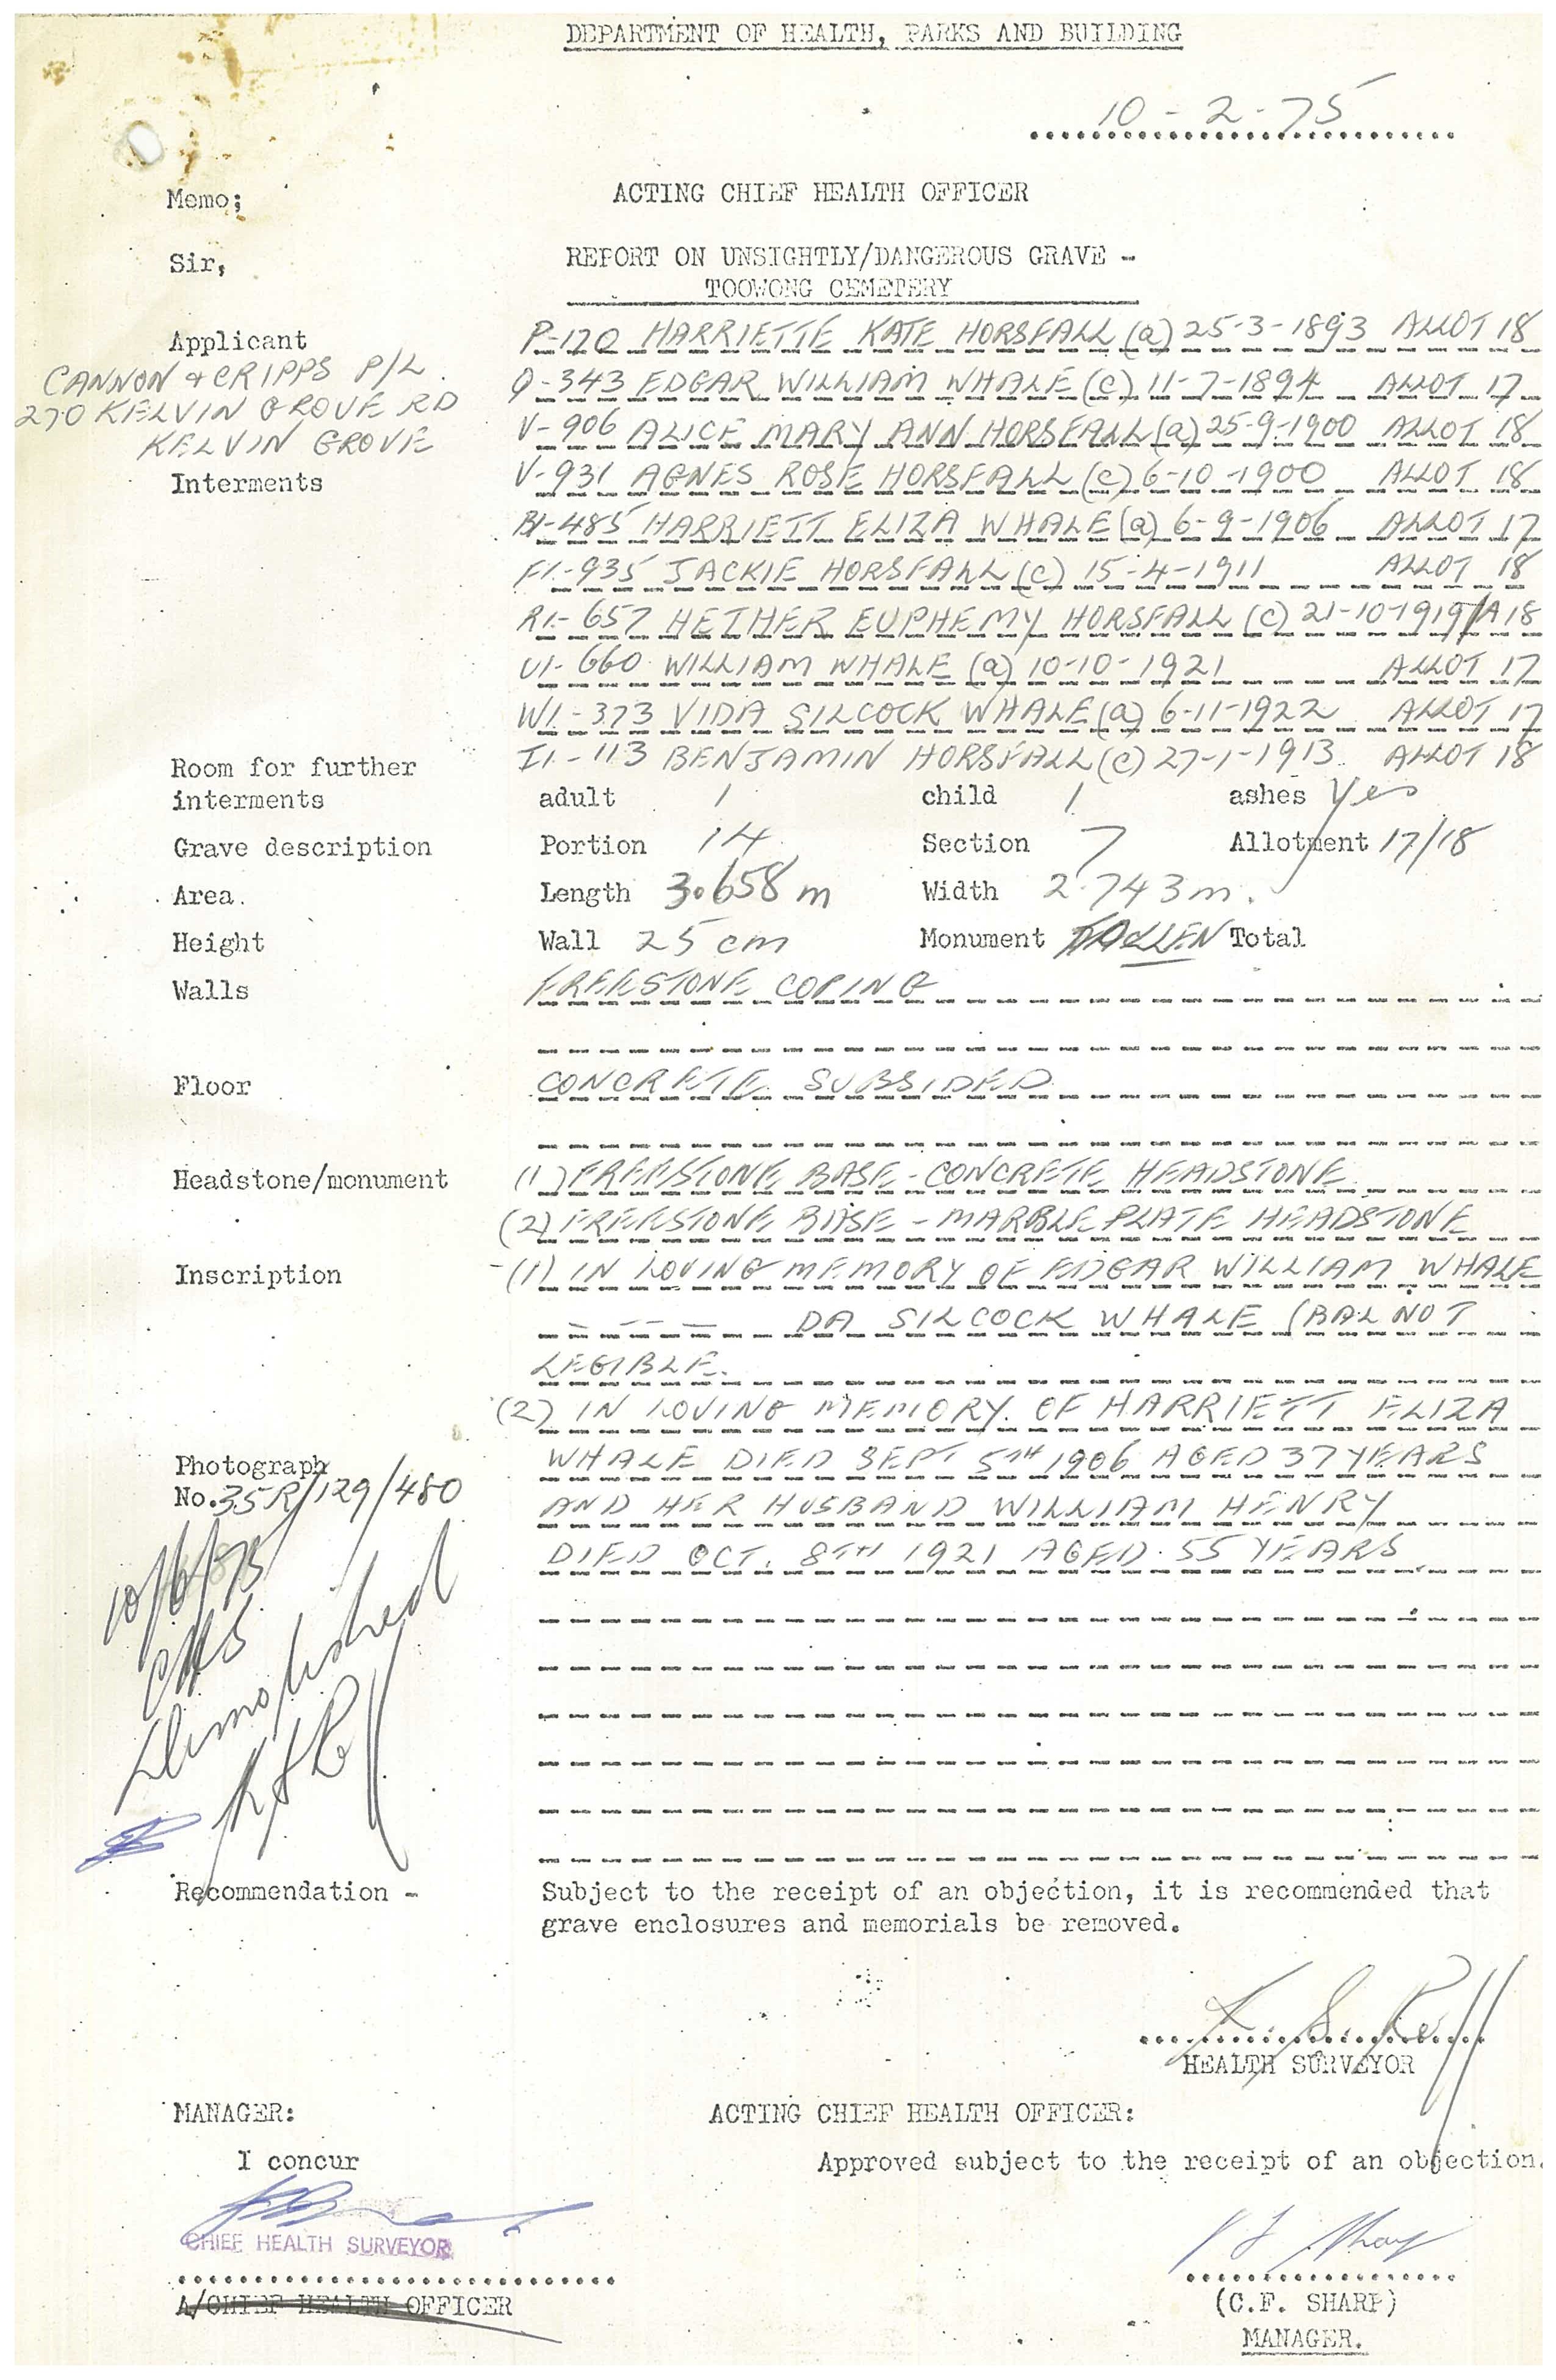 DEPARTMENT OF HEALTH, PARKS AND BUILDING
10-2-75
Memo; ACTING CHIEF HEALTH OFFICER
Sir, REPORT ON UNSIGHTLY/DANGEROUS GRAVE -
TOOWONG CEMETERY
Applicant P-120 HARRIETTE KATE HORSFALL (a) 25-3-1893 ALLOT 18
CANNON & CRIPPS P/L. Q-343 EDGAR WILLIAM WHALE (c) 11-7-1894 ALLOT 17
270 KELVIN GROVE RD V-906 ALICE MARY ANN HORSFALL (a) 25-9-1900 ALLOT 18
KELVIN GROVE
Interments V-931 AGNES ROSE HORSFALL (c) 6-10-1900 ALLOT 18
B1-485 HARRIETT ELIZA WHALE (a) 6-9-1906 ALLOT 17
F1-935 JACKIE HORSFALL (c) 15-4-1911 ALLOT 18
R1-657 HETHER EUPHEMY HORSFALL (c) 21-10-1919/A18
U1-660 WILLIAM WHALE (a) 10-10-1921 ALLOT 17
W1-373 VIDA SILCOCK WHALE (a) 6-11-1922 ALLOT 17
I1-113 BENJAMIN HORSFALL (c) 27-1-1913 ALLOT 18
Room for further
interments adult 1 child 1 ashes Yes
Grave description Portion 14 Section 7 Allotment 17/18
Area. Length 3.658 m Width 2.743 m.
Height Wall 25 cm Monument FALLEN Total
Walls FREESTONE COPING
Floor CONCRETE SUBSIDED
Headstone/monument (1) FREESTONE BASE - CONCRETE HEADSTONE
(2) FREESTONE BASE - MARBLE PLATE HEADSTONE
Inscription -(1) IN LOVING MEMORY OF EDGAR WILLIAM WHALE
- - - - DA SILCOCK WHALE (BAL NOT
LEGIBLE.
(2) IN LOVING MEMORY OF HARRIETT ELIZA
WHALE DIED SEPT 5TH 1906 AGED 37 YEARS
AND HER HUSBAND WILLIAM HENRY
DIED OCT. 8TH 1921 AGED 55 YEARS
Photograph
No. 35R/129/480
10/6/75
CHS
Demolished
Recommendation - Subject to the receipt of an objection, it is recommended that
grave enclosures and memorials be removed.
HEALTH SURVEYOR
MANAGER: ACTING CHIEF HEALTH OFFICER:
I concur Approved subject to the receipt of an objection.
CHIEF HEALTH SURVEYOR
A/CHIEF HEALTH OFFICER
(C.F. SHARP)
MANAGER.